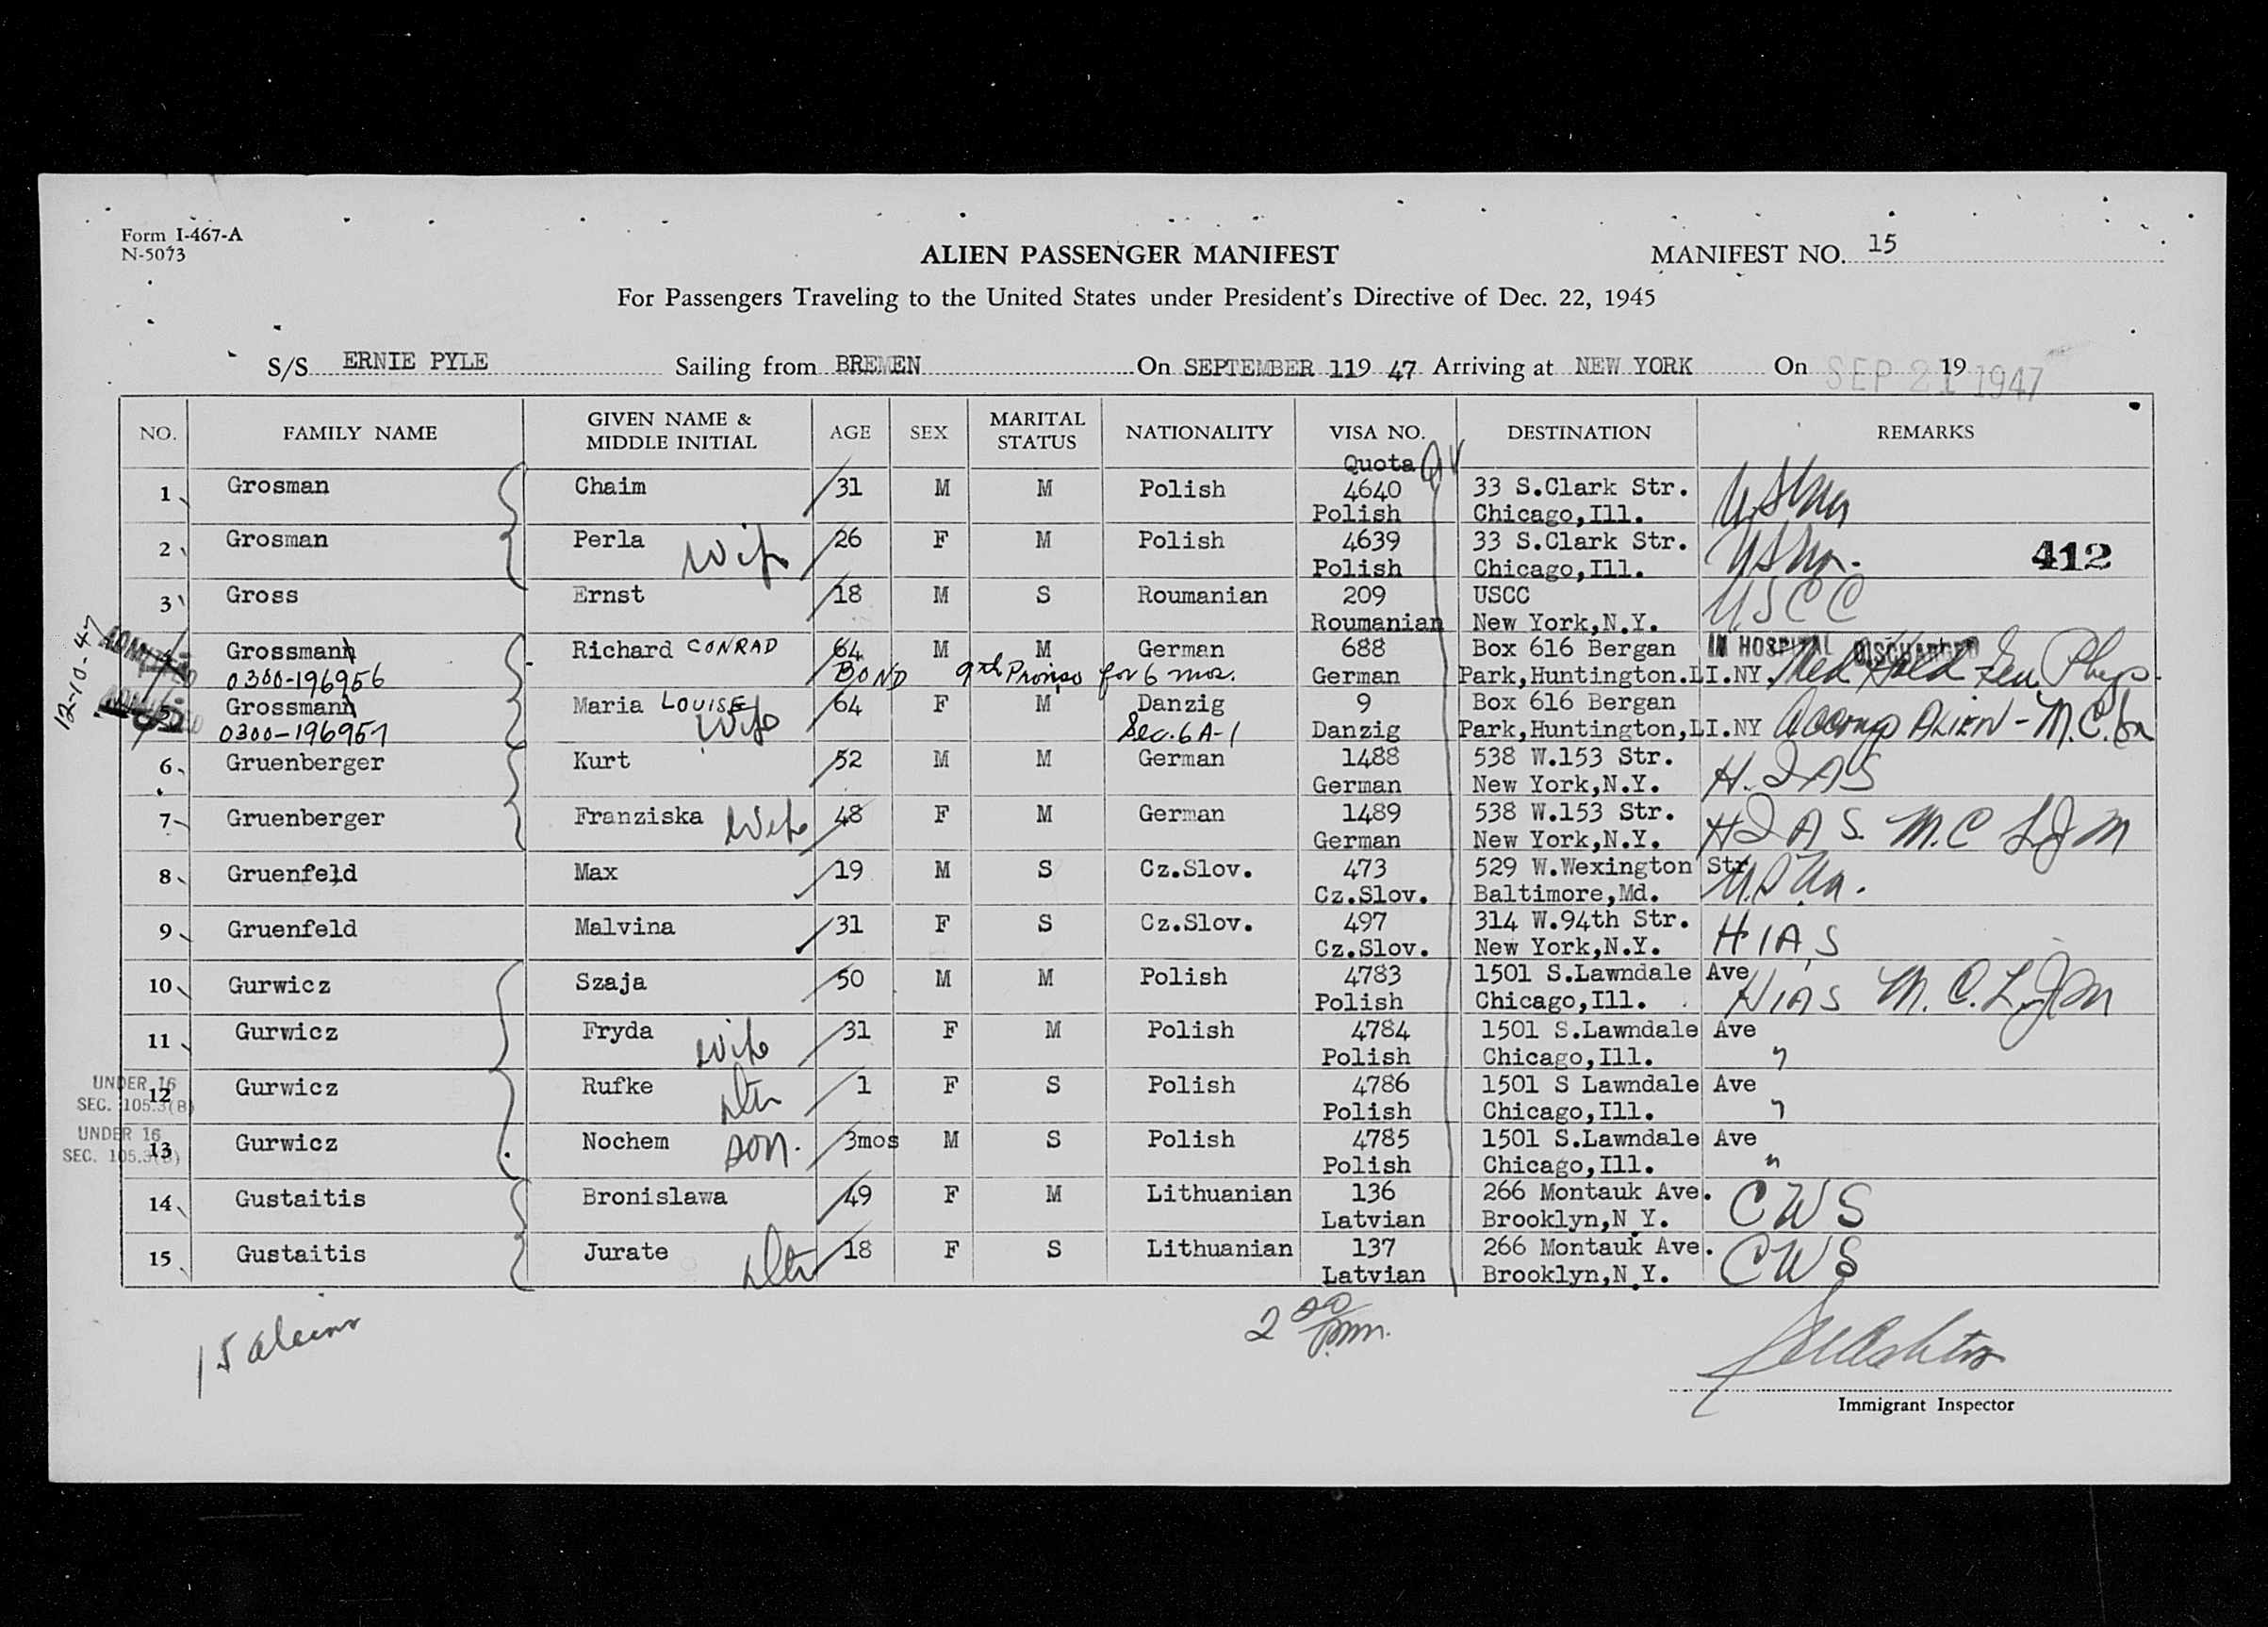 Form I-467-A
N-5073
ALIEN PASSENGER MANIFEST
MANIFEST NO. 15
For Passengers Traveling to the United States under President's Directive of Dec. 22, 1945
S/S ERNIE PYLE Sailing from BREMEN On SEPTEMBER 11 19 47 Arriving at NEW YORK On SEP 21 1947 19
NO. FAMILY NAME GIVEN NAME & MIDDLE INITIAL AGE SEX MARITAL STATUS NATIONALITY VISA NO. DESTINATION REMARKS
Quota
1 Grosman Chaim 31 M M Polish 4640 33 S.Clark Str.
Polish Chicago,Ill.
2 Grosman Perla wife 26 F M Polish 4639 33 S.Clark Str. 412
Polish Chicago,Ill.
3 Gross Ernst 18 M S Roumanian 209 USCC USCC
Roumanian New York,N.Y.
12-10-47
ADMITTED Grossmann Richard CONRAD 64 M M German 688 Box 616 Bergan IN HOSPITAL DISCHARGED
0300-196956 BOND 9th Proviso for 6 mos. German Park,Huntington.LI.NY. Med Held Gen. Phys.
ADMITTED 5 Grossmann Maria LOUISE wife 64 F M Danzig 9 Box 616 Bergan
0300-196957 Sec. 6A-1 Danzig Park,Huntington,LI.NY Accomp ALIEN - M.C.
6 Gruenberger Kurt 52 M M German 1488 538 W.153 Str. HIAS
German New York,N.Y.
7 Gruenberger Franziska wife 48 F M German 1489 538 W.153 Str. HIAS M.C LJM
German New York,N.Y.
8 Gruenfeld Max 19 M S Cz.Slov. 473 529 W.Wexington Str
Cz.Slov. Baltimore,Md.
9 Gruenfeld Malvina 31 F S Cz.Slov. 497 314 W.94th Str. HIAS
Cz.Slov. New York,N.Y.
10 Gurwicz Szaja 50 M M Polish 4783 1501 S.Lawndale Ave
Polish Chicago,Ill. HIAS M.C. LJM
11 Gurwicz Fryda wife 31 F M Polish 4784 1501 S.Lawndale Ave
Polish Chicago,Ill. "
UNDER 16
SEC. 105.3(B)
12 Gurwicz Rufke dtr 1 F S Polish 4786 1501 S Lawndale Ave
Polish Chicago,Ill. "
UNDER 16
SEC. 105.3(B)
13 Gurwicz Nochem son. 3mos M S Polish 4785 1501 S.Lawndale Ave
Polish Chicago,Ill. "
14 Gustaitis Bronislawa 49 F M Lithuanian 136 266 Montauk Ave. CWS
Latvian Brooklyn,N.Y.
15 Gustaitis Jurate dtr 18 F S Lithuanian 137 266 Montauk Ave. CWS
Latvian Brooklyn,N.Y.
15 aleins
Immigrant Inspector